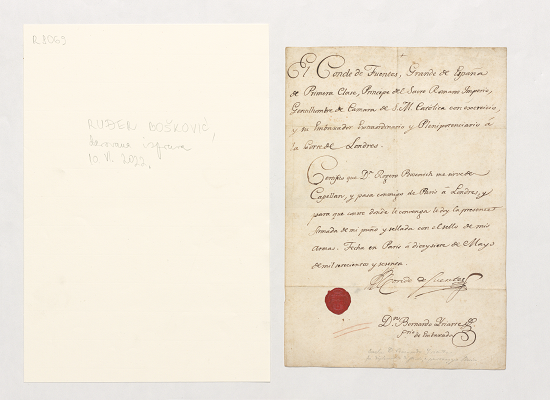 R 8069
RUĐER BOŠKOVIĆ,
10. VI. 2022.
El Conde de Fuentes, Grande de España
de Primera Clase, Principe del Sacro Romano Imperio,
Gentilhombre de Camara de S. M. Catolica con exercicio,
y su Embaxador Extraordinario y Plenipotenciario à
la Corte de Londres.
Certifico que Dn. Rogero Boscovich me sirve de
Capellan, y pasa conmigo de Paris à Londres, y
para que conste donde le convenga le doy la presente
firmada de mi puño y sellada con el sello de mis
armas. Fecha en Paris à diez y siete de Mayo
de mil setecientos y sesenta.
El Conde de Fuentes
Dn. Bernardo Yriarte
Srio. de Embaxada